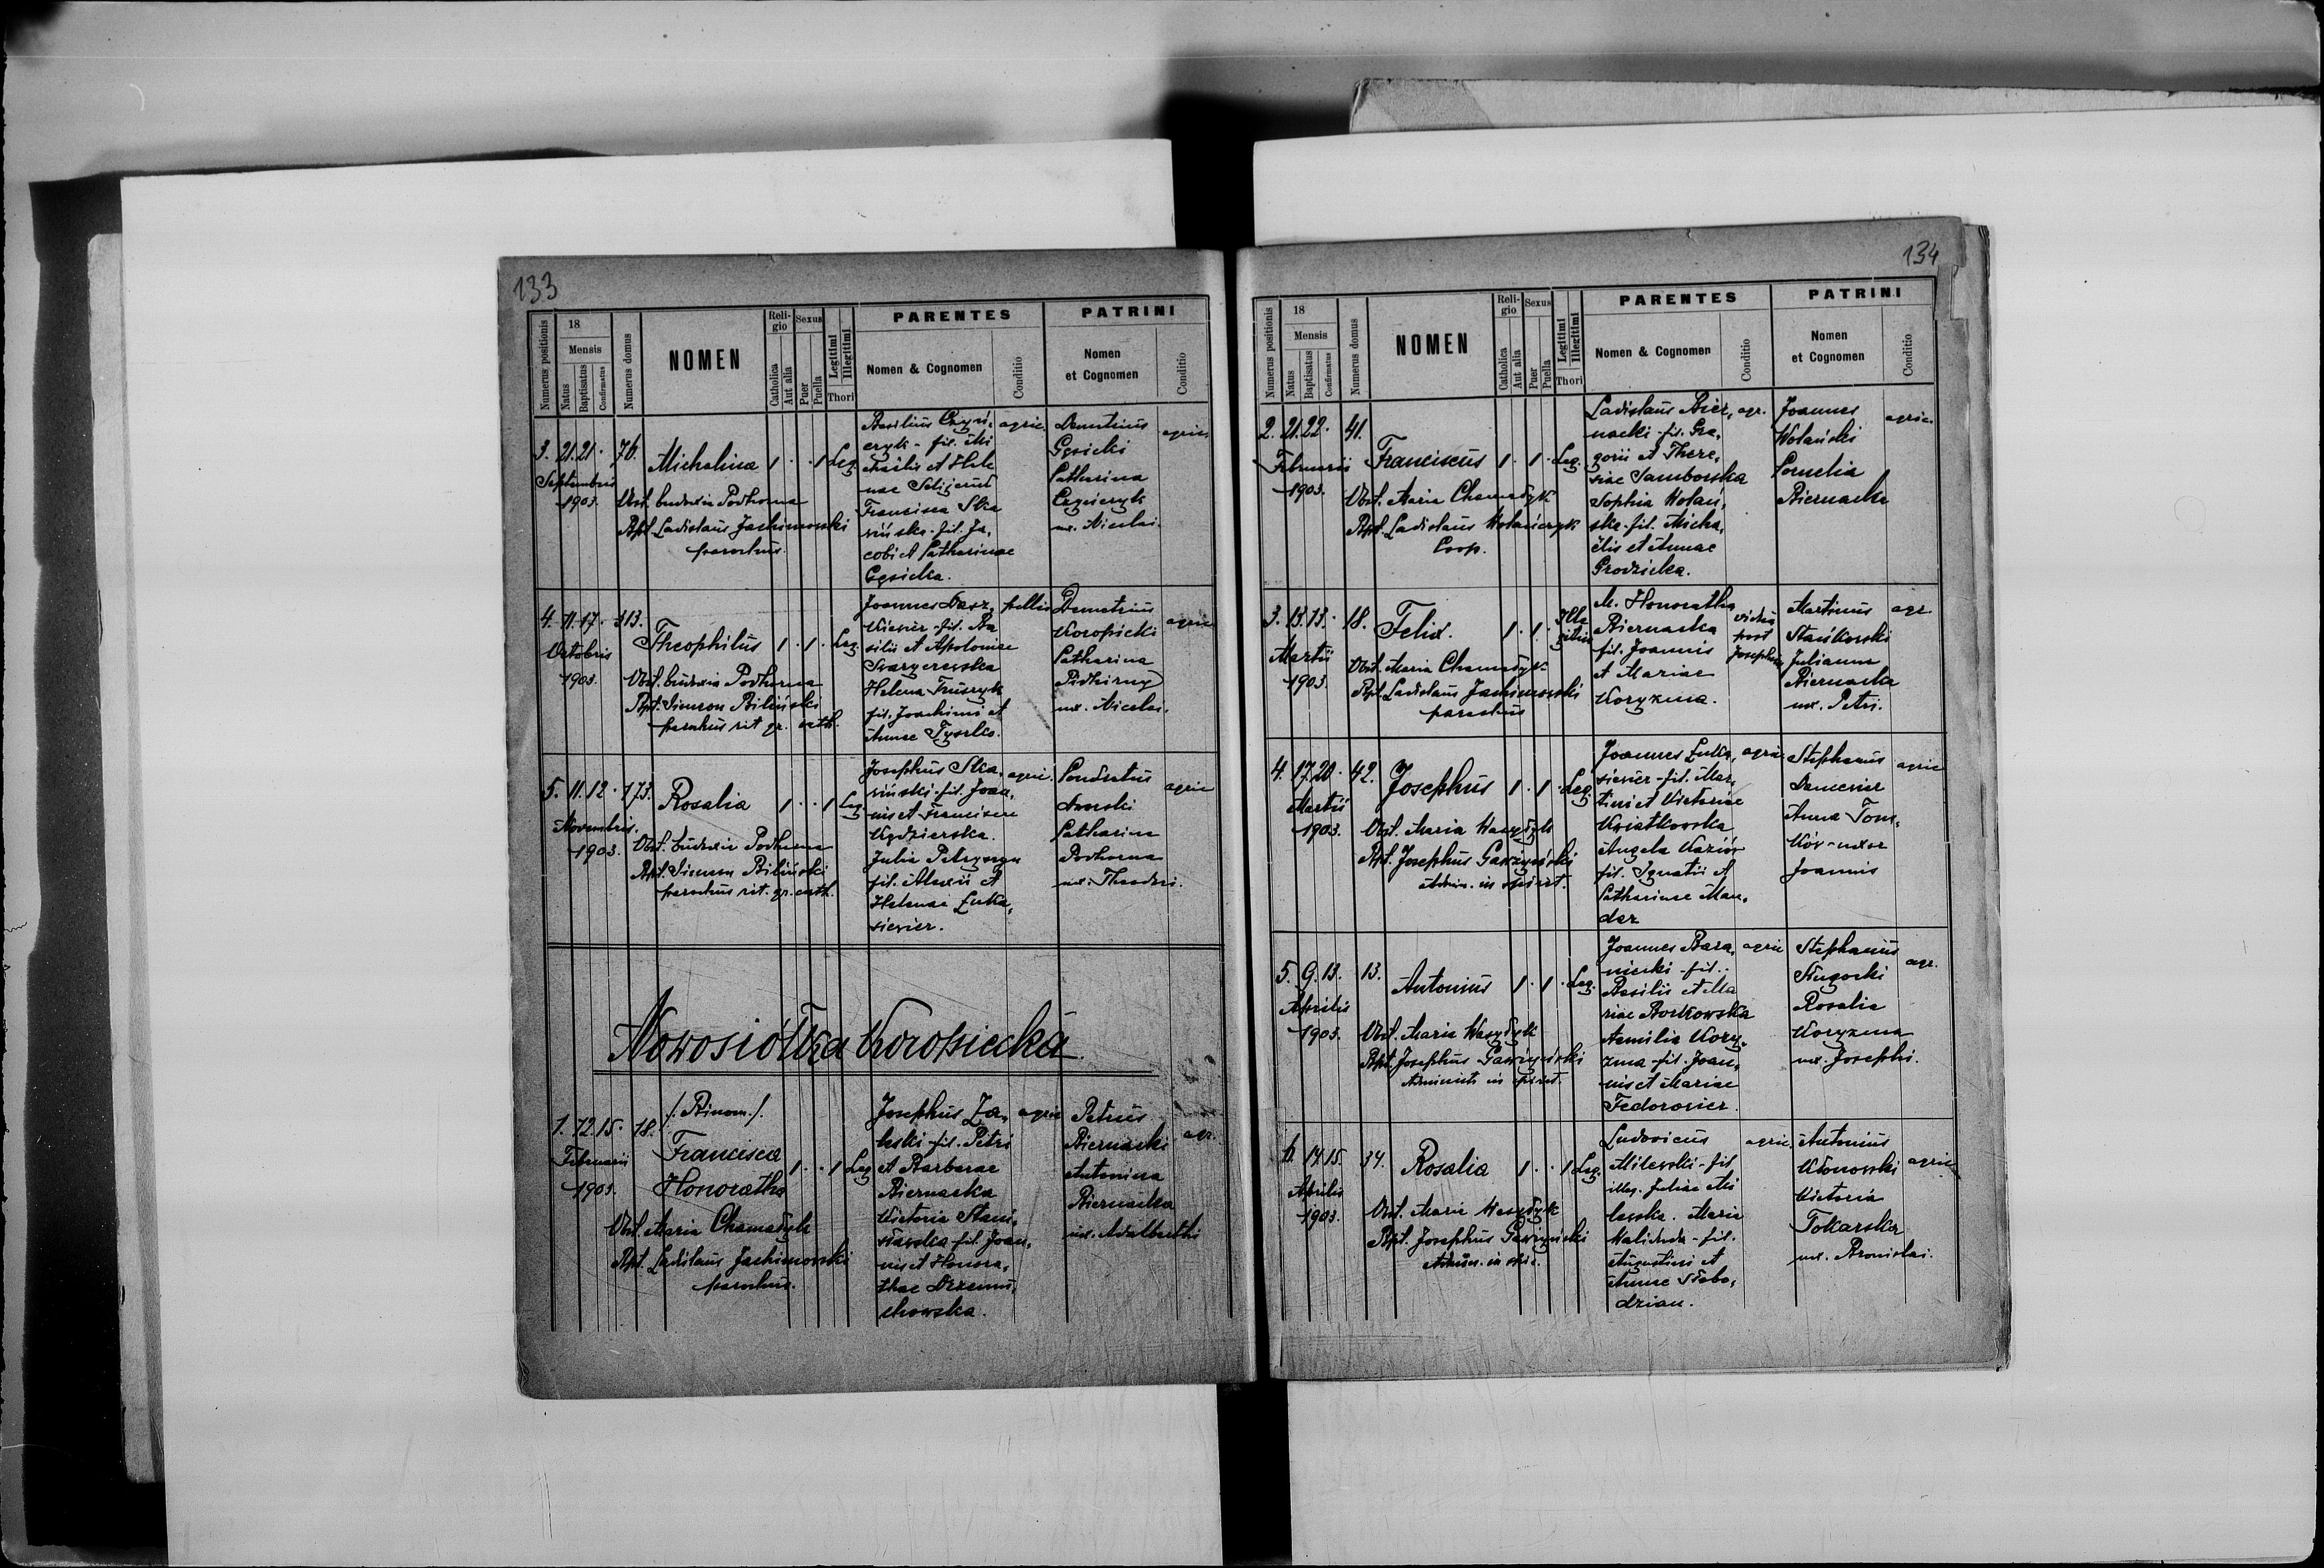 133
Numerus positionis
18
Mensis
Natus
Baptisatus
Confirmatus
Numerus domus
NOMEN
Religio
Catholica
Aut alia
Sexus
Puer
Puella
Legitimi
Illegitimi
Thori
PARENTES
Nomen & Cognomen
Conditio
PATRINI
Nomen et Cognomen
Conditio
3. 21. 21. 76.
Septembris
1903.
Michalina 1 1 Leg.
Obst. Eudoxia Podhorna
Bapt. Ladislaus Jachimowski
parochus.
Basilius
czyk - fil. Mi
chaelis et Hele
nae
Francisca Ska
rińska - fil. Ja,
cobi et Catharinae
Gęsicka.
agric.
Demetrius
Gęsicki
Catharina
ux. Nicolai.
agric.
4. 11. 17. 313.
Octobris
1903.
Theophilus 1 1 Leg.
Obst. Eudoxia Podhorna
Bapt. Simeon Biliński
parochus rit. gr. cath.
Joannes
kiewicz - fil. Ba
silii et Apoloniae
Helena
fil. Joachimi et
Annae
pellio
Demetrius
Koropiecki
Catharina
Pidhirny
ux. Nicolai.
agric
5. 11. 12. 173.
Novembris.
1903.
Rosalia 1 1 Leg
Obst. Eudoxia Podhorna
Bapt. Simeon Biliński
parochus rit. gr. cath.
Josephus Ska,
riński - fil. Joan,
nis et Franciscae
Kędzierska.
Julia Petryszyn
fil. Alexii et
Helenae Łuka,
siewicz.
agric.
Condratus
Catharina
Podhorna
ux. Theodori.
agric
Nowosiółka Koropiecka
1. 12. 15. 18.
Februarii
1903.
/: Binom. :/
Francisca
Honoratha
1 1 Leg
Obst. Maria Chamadyk
Bapt. Ladislaus Jachimowski
parochus.
Josephus Za,
leski - fil. Petri
et Barbarae
Biernacka
Victoria Stani,
sławska - fil. Joan,
nis et Honora,
thae
chowska.
agric
Petrus
Biernacki
Antonina
Biernacka
ux. Adalberthi
agr.
134
Numerus positionis
18
Mensis
Natus
Baptisatus
Confirmatus
Numerus domus
NOMEN
Religio
Catholica
Aut alia
Sexus
Puer
Puella
Legitimi
Illegitimi
Thori
PARENTES
Nomen & Cognomen
Conditio
PATRINI
Nomen
et Cognomen
Conditio
2. 21. 22. 41.
Februarii
1903.
Franciscus 1 1 Leg.
Obst. Maria Chamadyk
Bapt. Ladislaus Wolańczyk
Coop.
Ladislaus Bier,
nacki - fil. Gre,
gorii et There,
siae Samborska
Sophia Wolań,
ska - fil. Micha,
ëlis et Annae
Grodzicka.
agr.
Joannes
Wolański
Cornelia
Biernacka
agric.
3. 13. 13. 18.
Martii
1903.
Felix. 1 1 Ille
gitim
Obst. Maria Chamadyk
Bapt. Ladislaus Jachimowski
parochus
M. Honoratha
Biernacka
fil. Joannis
et Mariae
Koryzma.
vidua
post
Josephum
Martinus
Stańkowski
Julianna
Biernacka
ux. Petri.
agr.
4. 17. 20. 42.
Martii
1903.
Josephus 1 1 Leg.
Obst. Maria Wasydyk
Bapt. Josephus Gawrzyński
Admin. in spirit.
Joannes Łuka,
siewicz - fil. Mar,
tini et Victoriae
Kwiatkowska
Angela Kaziów
fil. Ignatii et
Catharinae Man,
dar
agric.
Stephanus
Anna Tom,
ków - uxor
Joannis
agric
5. 9. 13. 13.
Aprilis
1903.
Antonius 1 1 Leg.
Obst. Maria Wasydyk
Bapt. Josephus Gawrzyński
Administr. in spirit.
Joannes Bara,
niecki - fil.
Basilii et Ma
riae Borkowska
Aemilia Kory,
zma - fil. Joan,
nis et Mariae
Fedorowicz.
agric
Stephanus
Rosalia
Koryzma
ux. Josephi.
agr.
6. 14. 15. 34.
Aprilis
1903.
Rosalia 1 1 Leg.
Obst. Maria Wasydyk
Bapt. Josephus Gawrzyński
Admin. in spir.
Ludovicus
Milewski - fil.
illeg. Juliae Mi
lewska. Maria
fil.
Augustini et
Annae Słobo,
dzian.
agric.
Antonius
Kłonowski
Victoria
Tokarska
ux. Bronislai.
agric